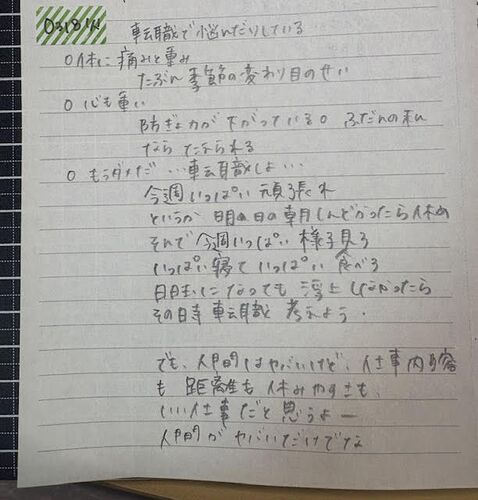 0318 転職で悩んだりしている
○体に痛みと重み
たぶん季節の変わり目のせい
○心も重い
防ぎょ力が下がっている。ふだんの私
なら たえられる
○もうダメだ…転職しよ…
今週いっぱい頑張れ
というか 明日の朝しんどかったら休め
それで今週いっぱい様子見ろ
いっぱい寝ていっぱい食べろ
になっても 浮上しなかったら
その時転職考えよう.
でも、人間的はヤバいけど、仕事内容
も 距離も 休みやすさも、
いい仕事だと思うよー
人間がヤバいだけでな